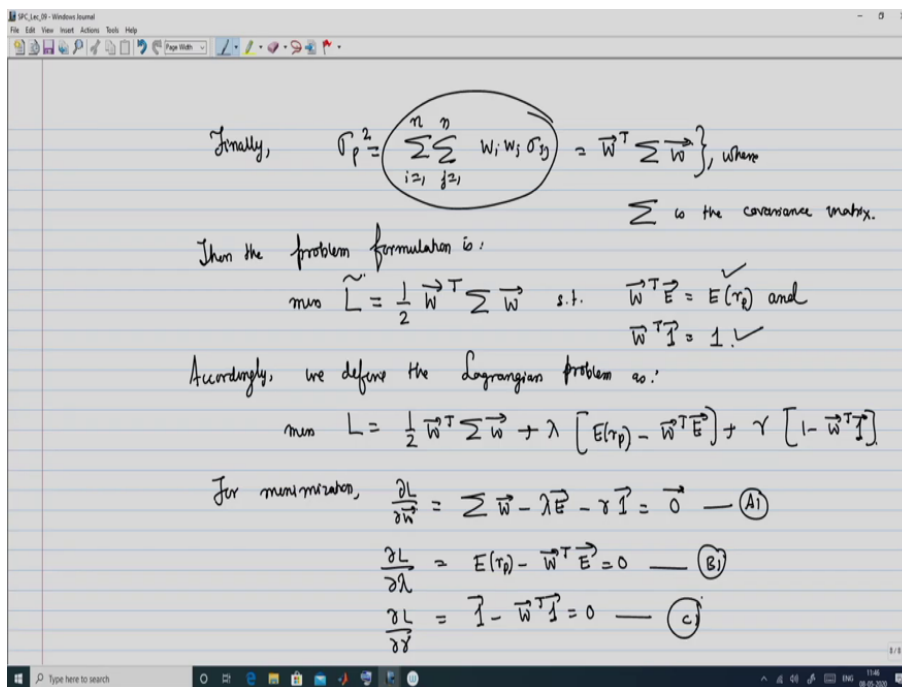 SPC_Lec_09 - Windows Journal
File Edit View Insert Actions Tools Help
Page Width
Finally, σ_p² = Σ_{i=1}^{n} Σ_{j=1}^{n} w_i w_j σ_{ij} = w⃗^T Σ w⃗ }, where
Σ is the covariance matrix.
Then the problem formulation is:
min L̃ = 1/2 w⃗^T Σ w⃗ s.t. w⃗^T E⃗ = E(r_p) and ✓
w⃗^T 1⃗ = 1. ✓
Accordingly, we define the Lagrangian problem as:
min L = 1/2 w⃗^T Σ w⃗ + λ [E(r_p) - w⃗^T E⃗] + γ [1 - w⃗^T 1⃗]
For minimization, ∂L/∂w⃗ = Σ w⃗ - λE⃗ - γ 1⃗ = 0⃗ — (A1)
∂L/∂λ = E(r_p) - w⃗^T E⃗ = 0 — (B1)
∂L/∂γ = 1⃗ - w⃗^T 1⃗ = 0 — (C1)
1/1
Type here to search
ENG
11:46
08-05-2020